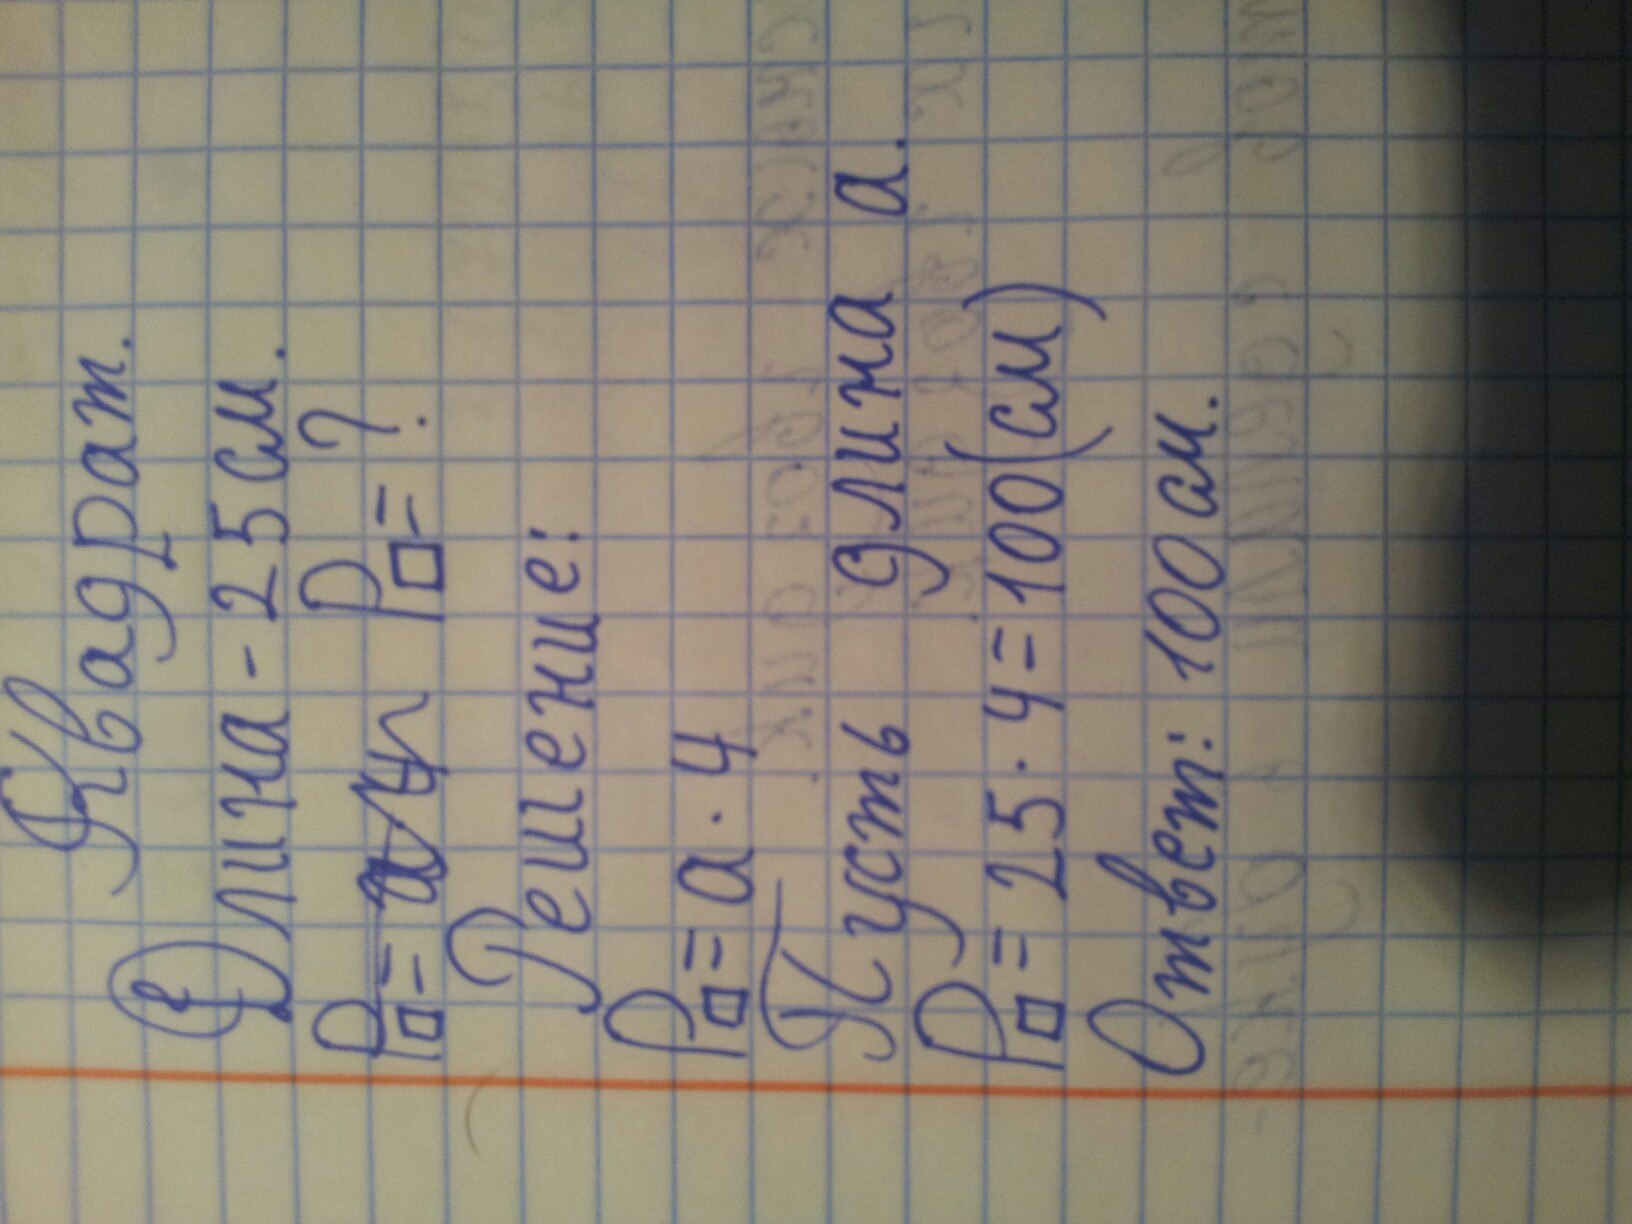 Квадрат.
Длина - 25 см.
P□= P□=?
Решение:
P□= a · 4
Пусть длина a.
P□= 25 · 4 = 100 (см)
Ответ: 100 см.